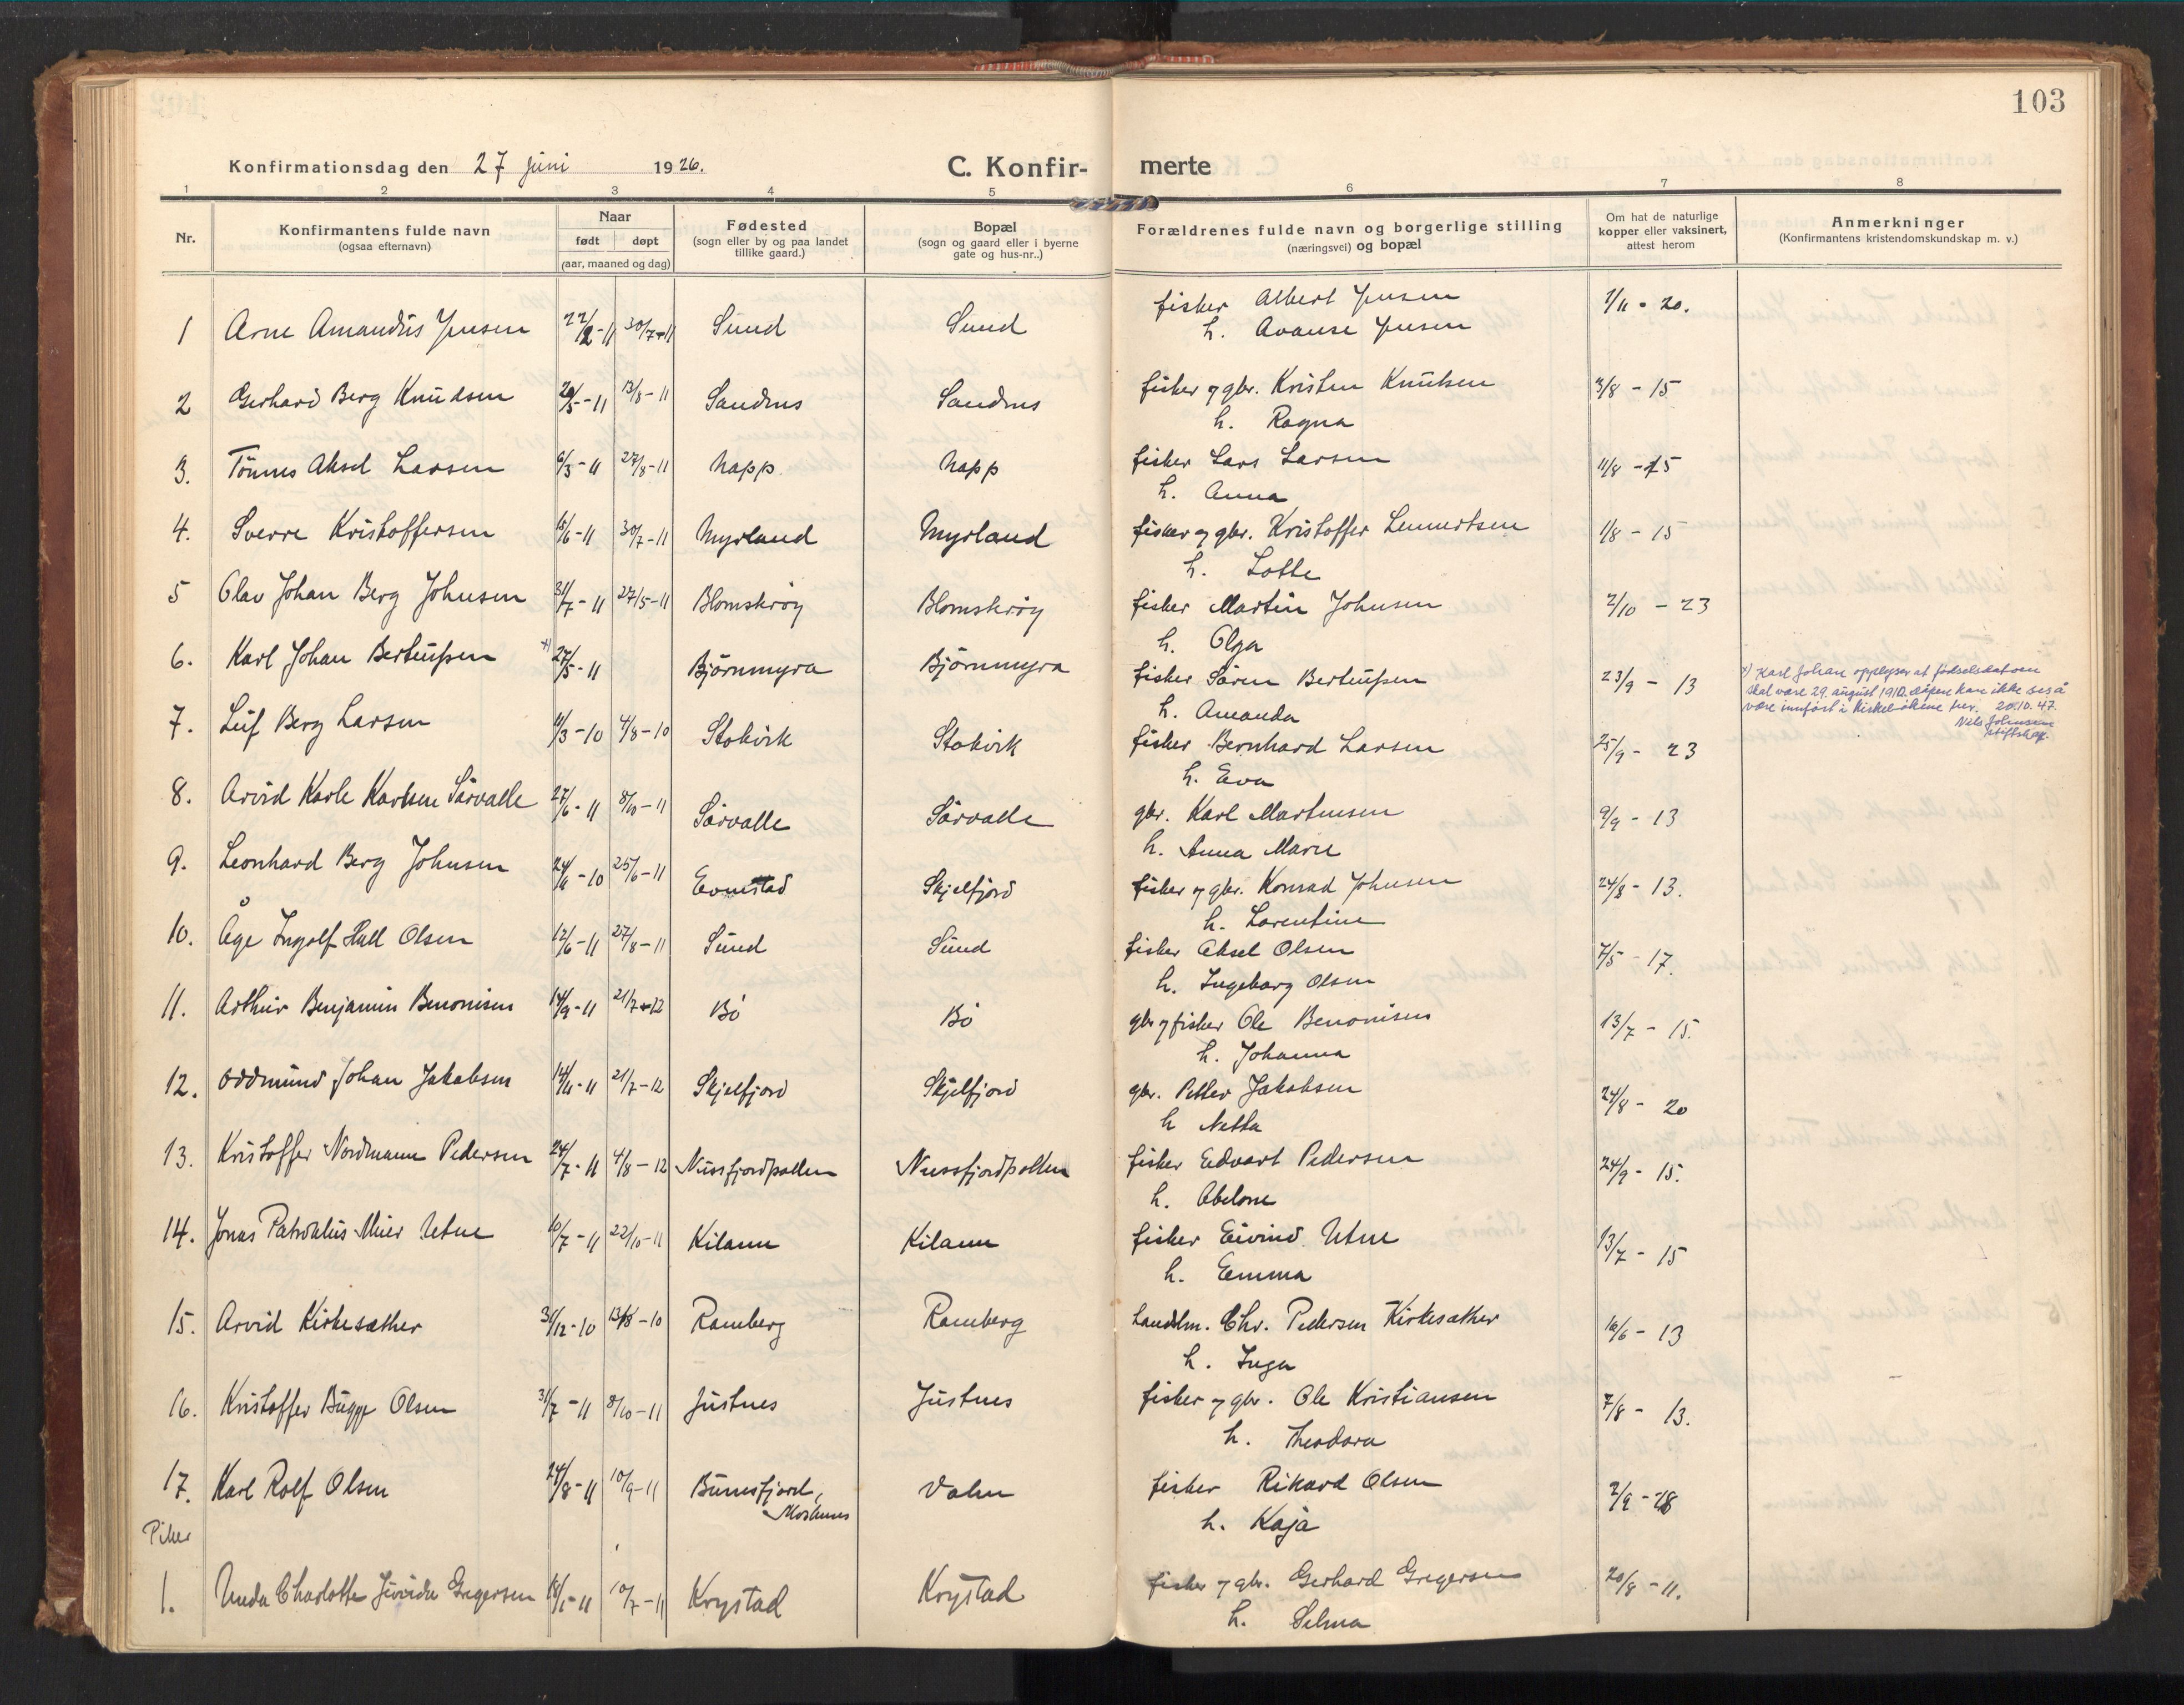 103
Konfirmationsdag den 27 juni 1926.
C. Konfir- merte
1 2 3 4 5 6 7 8
Nr.
Konfirmantens fulde navn
(ogsaa efternavn)
Naar
født døpt
(aar, maaned og dag)
Fødested
(sogn eller by og paa landet
tillike gaard.)
Bopæl
(sogn og gaard eller i byerne
gate og hus-nr..)
Forældrenes fulde navn og borgerlige stilling
(næringsvei) og bopæl
Om hat de naturlige
kopper eller vaksinert,
attest herom
Anmerkninger
(Konfirmantens kristendomskundskap m. v.)
1 Arne Amandus Jensen 22/2-11 30/7-11 Sund Sund fisker Albert Jensen 1/11 - 20.
h. Avanse Jensen
2 Gerhard Berg Knudsen 13/8-11 Sandnes Sandnes fisker og gbr. Kristen Knutsen 3/8 - 15
h. Ragna
3. Tönnes Aksel Larsen 6/3-11 27/8-11 Napp Napp fisker Lars Larsen 11/8 - 15
h. Anna
4. Sverre Kristoffersen 15/6-11 30/7-11 Myrland Myrland fisker og gbr. Kristoffer Lennertsen 1/8 - 15
h. Lotte
5 Olav Johan Berg Johnsen 27/5-11 Blomskröy Blomskröy fisker Martin Johnsen 2/10 - 23
h. Olga
6. Karl Johan Berteussen x) 27/5-11 Björnmyra Björnmyra fisker Sören Berteussen 23/9 - 13
h. Amanda
x) Karl Johan opplyser at fødselsdatoen
skal være 29. august 1910. dåpen kan ikke sees å
være innført i kirkebøkene her. 20.10.47.
Nils Johnsen
7. Leif Berg Larsen 11/3-10 4/8-10 Stokvik Stokvik fisker Bernhard Larsen 25/9 - 23
h. Eva
8. Arvid Karle Karlsen Sörvalle 27/6-11 8/10-11 Sörvalle Sörvalle gbr. Karl Martinsen 9/9 - 13
h. Anna Marie
9. Leonhard Berg Johnsen 24/11-10 25/6-11 Evenstad Skjelfjord fisker og gbr. Konrad Johnsen 24/8 - 13.
h. Lorentine
10. Åge Ingolf Hall Olsen 12/6-11 27/8-11 Sund Sund fisker Aksel Olsen 7/5 - 17.
h. Ingeborg Olsen
11. Arthur Benjamin Benonisen 14/9-11 21/7-12 Bö Bö gbr og fisker Ole Benonisen 13/7 - 15.
h. Johanna
12. Oddmund Johan Jakobsen 14/11-11 21/7-12 Skjelfjord Skjelfjord gbr. Petter Jakobsen 24/8 - 20
h Netta
13. Kristoffer Nordmann Pedersen 24/7-11 4/8-12 Nussfjordpollen Nussfjordpollen fisker Edvart Pedersen 24/9 - 15.
h. Abelone
14. Jonas Meier Utne 10/7-11 22/10-11 Kilann Kilann fisker Eivind Utne 13/7 - 15
h. Emma
15. Arvid Kirkesæther 31/12-10 Ramberg Ramberg Landhm. Chr. Pedersen Kirkesæther 16/6 - 13
h. Inga
16. Kristoffer Bugge Olsen 31/7-11 8/10-11 Justnes Justnes fisker og gbr. Ole Kristiansen 7/8 - 13.
h. Theodora
17. Karl Rolf Olsen 24/8-11 10/9-11 Bunesfjord, Volen fisker Rikard Olsen 2/9 - 18
Moskenes h. Kaja
Piker
1. Charlotte Gregersen 18/1-11 10/7-11 Krystad Krystad fisker og gbr. Gerhard Gregersen 20/8 - 11.
h. Selma